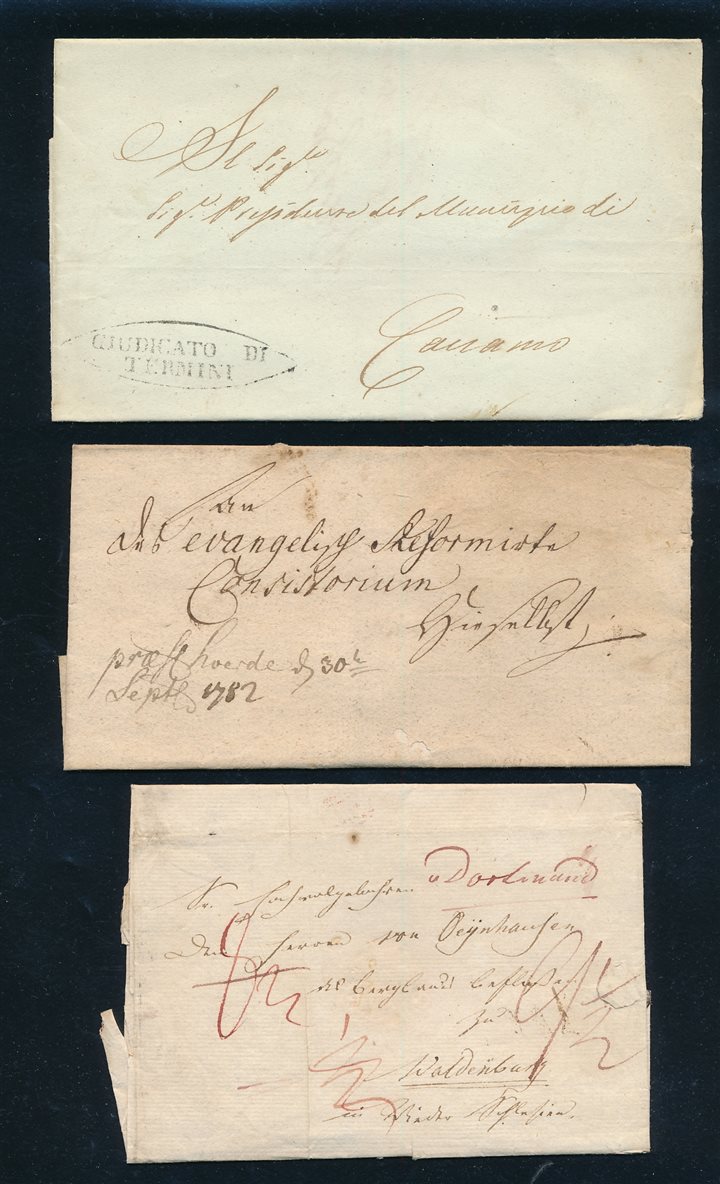 Al Sig.re
Sig.r Presidente del Municipio di
Caccamo
GIUDICATO DI
TERMINI
An
das evangelisch Reformirte
Consistorium
Hieselbst
præst hoerde d 30t
Septb 1782
v Dortmund
Sr. Hochwolgebohren
Dem Herren von Oeÿnhausen
der Bergbaus
zu
Waldenburg
in Nieder Schlesien.